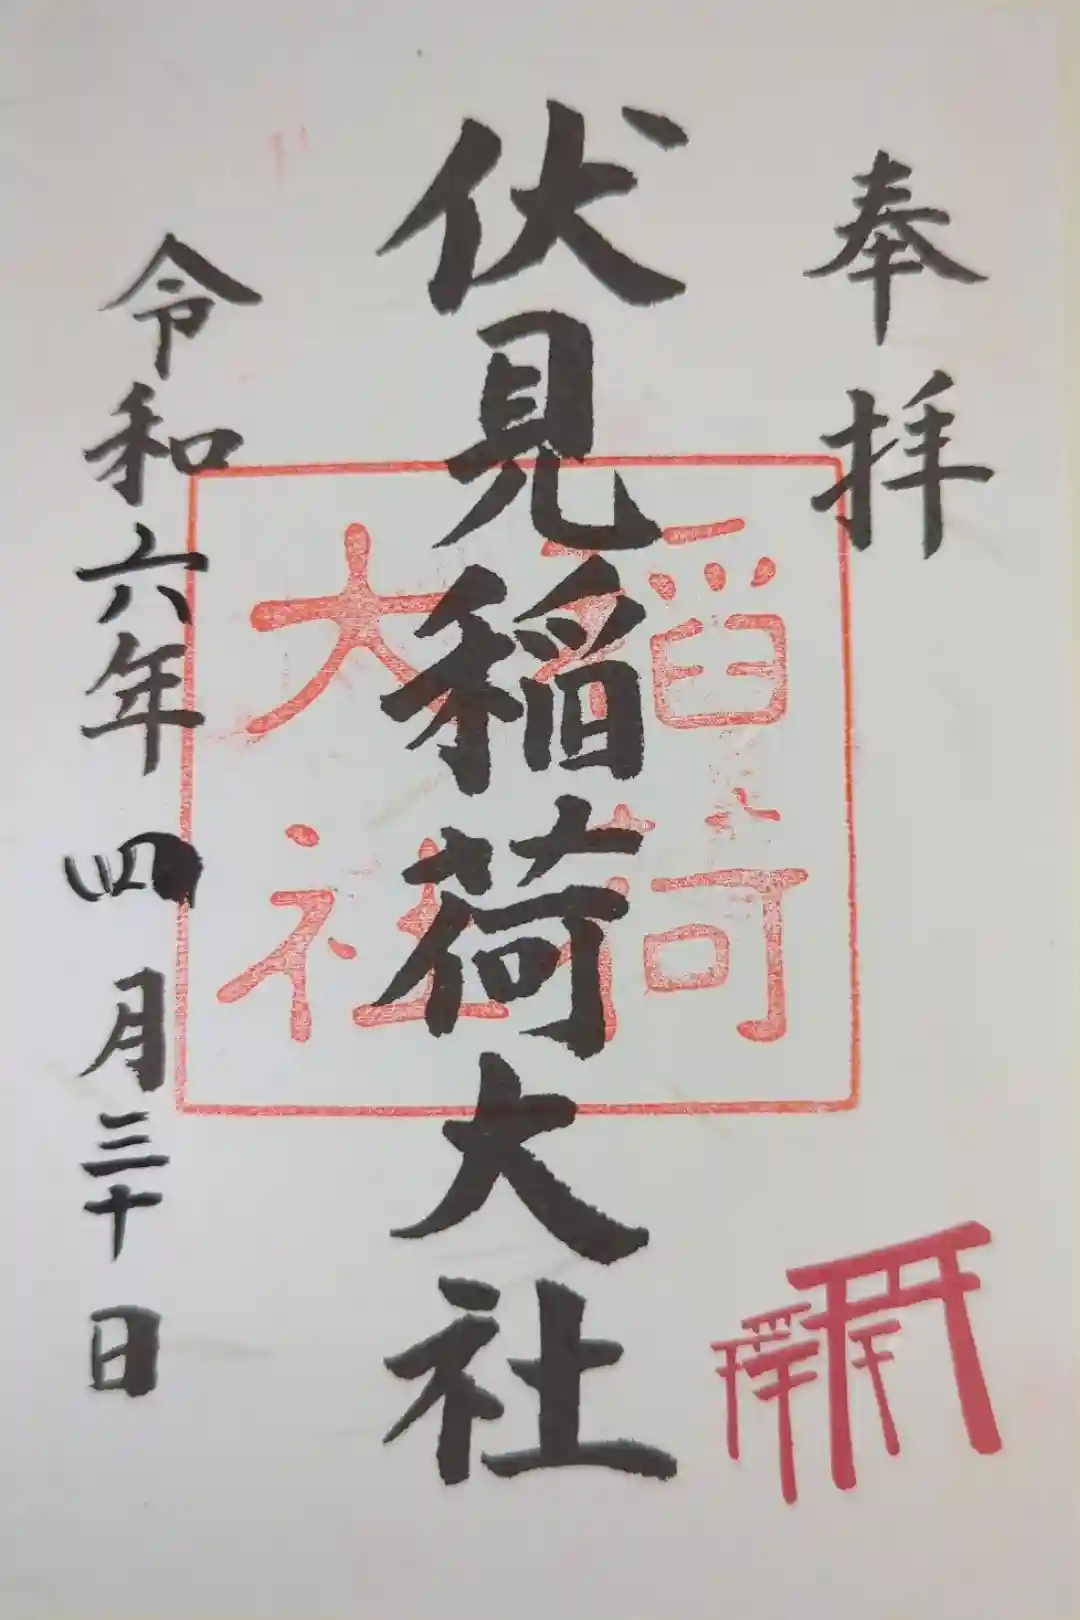 奉拝
伏見稲荷大社
稲荷
大社
令和六年四月三十日